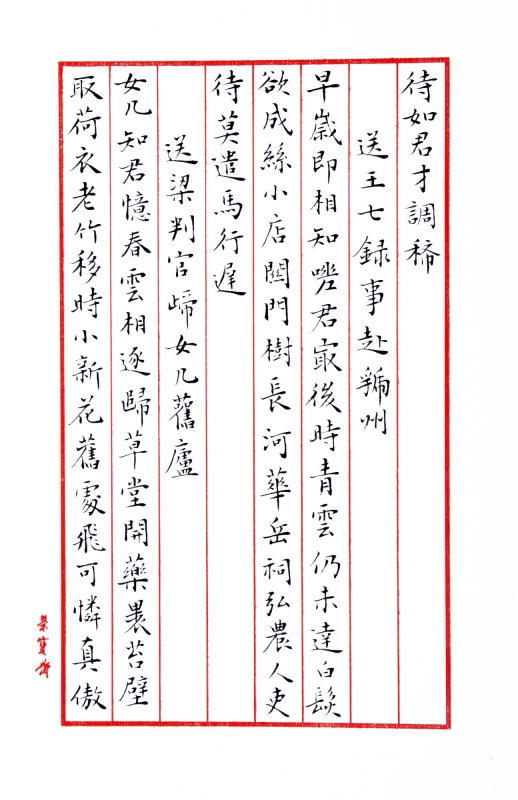 待如君才調稀
送王七録事赴虢州
早歲即相知嗟君最後時青雲仍未達白髮
欲成絲小店關門樹長河華岳祠弘農人吏
待莫遣馬行遲
送梁判官歸女几舊廬
女几知君憶春雲相逐歸草堂開藥裹苔壁
取荷衣老竹移時小新花舊處飛可憐真傲
榮寶齋